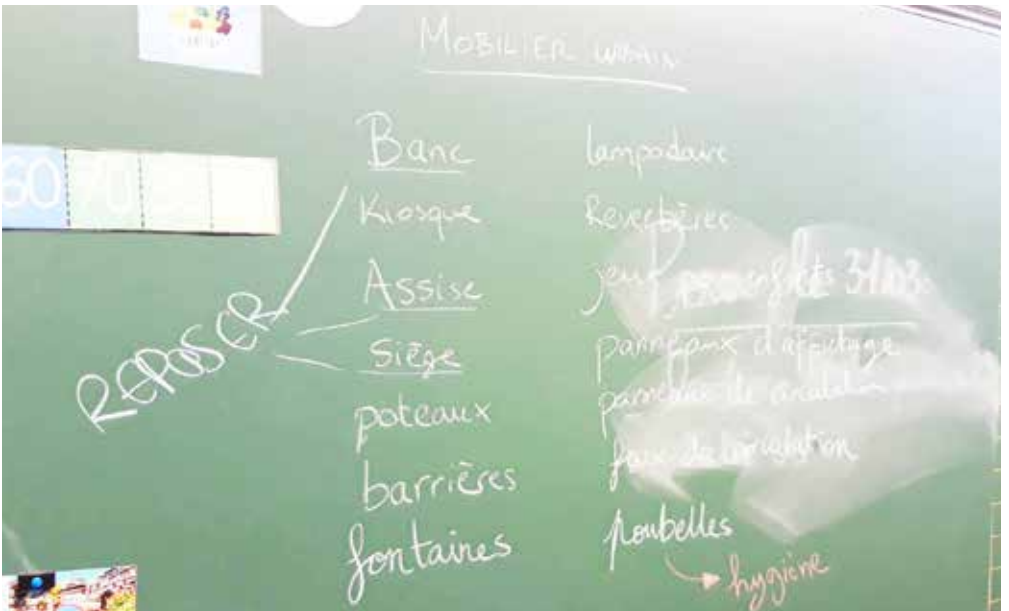 MOBILIER urbain
60 70
Banc
Kiosque
Assise
Siège
poteaux
barrières
fontaines
REPOSER
lampadaire
Reverbères
jeux pour enfants 31/03
panneaux d'affichage
panneaux de circulation
feux de circulation
poubelles
hygiène